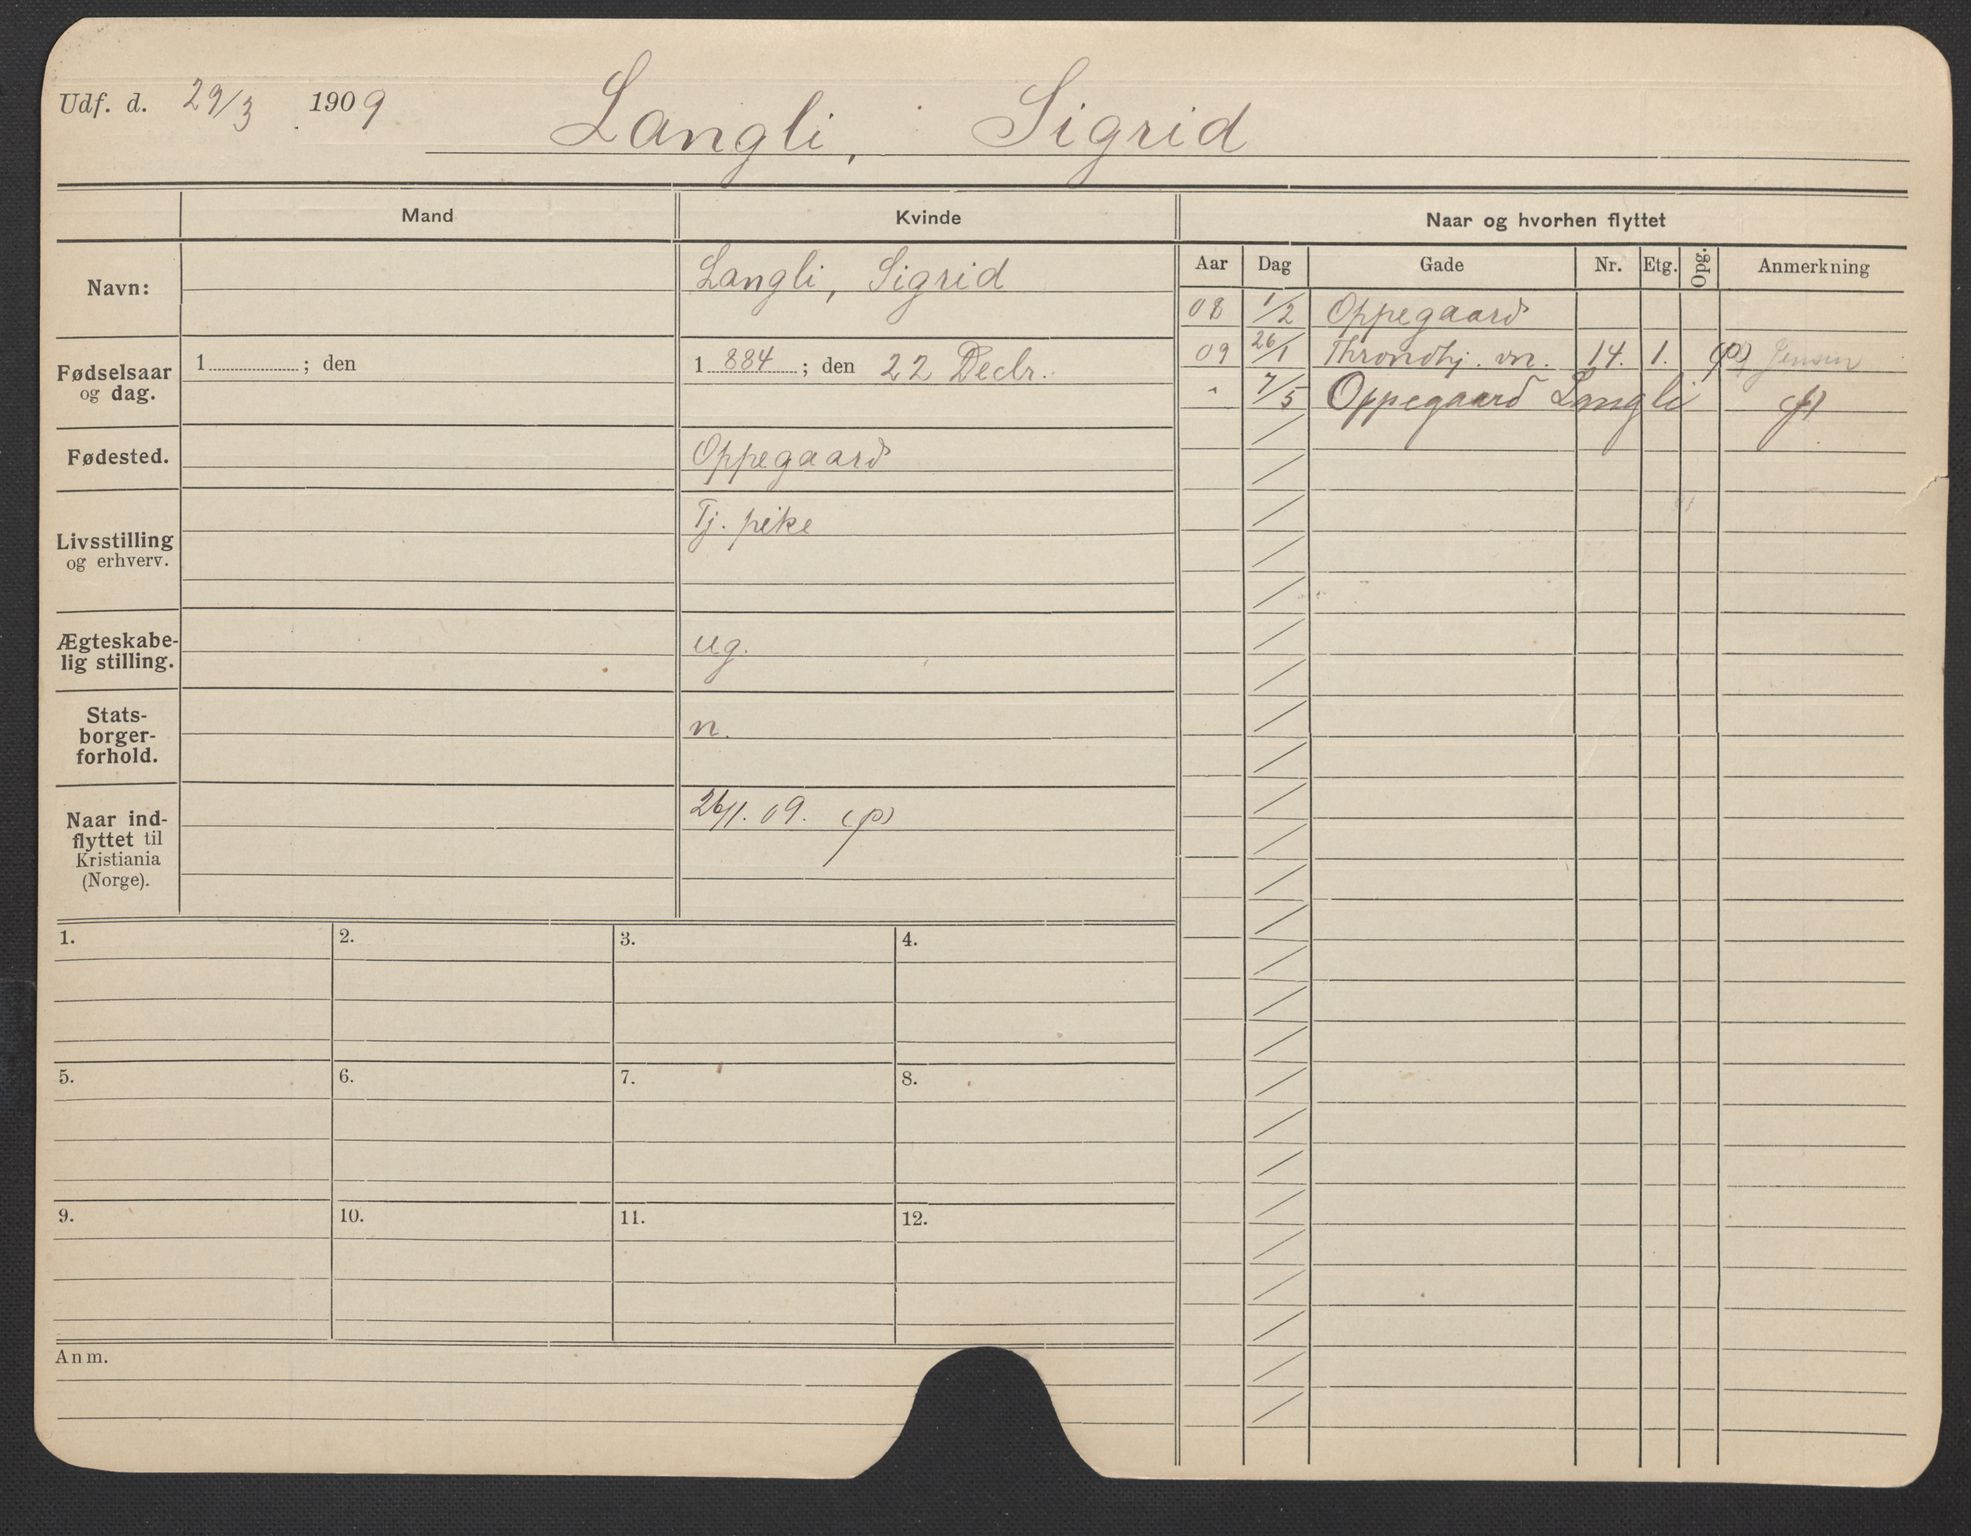 Udf. d. 29/3 1909 Langli, Sigrid
Mand Kvinde Naar og hvorhen flyttet
Aar Dag Gade Nr. Etg. Opg. Anmerkning
Navn: Langli, Sigrid
08 1/2 Oppegaard
09 26/1 Throndhj. vn. 14. 1. (p) Jensen
" 7/5 Oppegaard Langli (f)
Fødselsaar
og dag.
1 ; den
1 884 ; den 22 Decbr.
Fødested. Oppegaard
Livsstilling
og erhverv.
Tj. pike
Ægteskabe-
lig stilling.
ug.
Stats-
borger-
forhold.
n.
Naar ind-
flyttet til
Kristiania
(Norge).
26/1. 09. (p)
1. 2. 3. 4.
5. 6. 7. 8.
9. 10. 11. 12.
Anm.